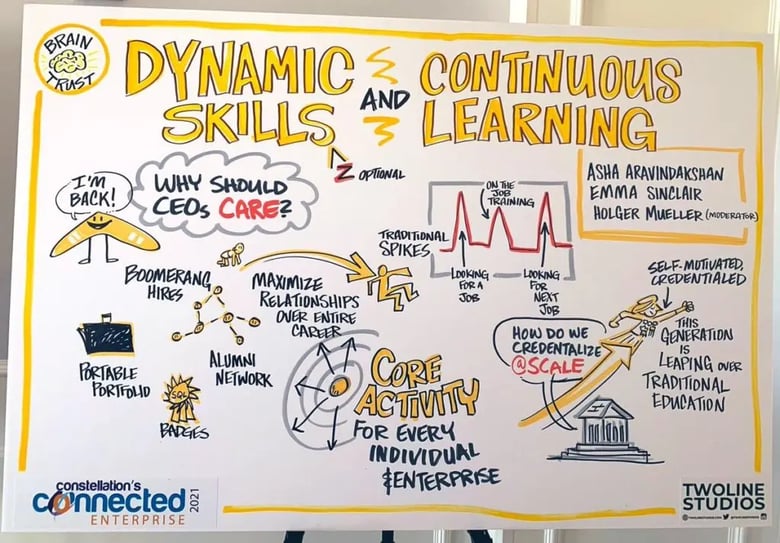 BRAIN
TRUST
DYNAMIC
SKILLS
AND
CONTINUOUS
LEARNING
Z OPTIONAL
I'M
BACK!
WHY SHOULD
CEOs CARE?
ASHA ARAVINDAKSHAN
EMMA SINCLAIR
HOLGER MUELLER (MODERATOR)
TRADITIONAL
SPIKES
ON THE
JOB
TRAINING
LOOKING
FOR A
JOB
LOOKING
FOR
NEXT
JOB
BOOMERANG
HIRES
MAXIMIZE
RELATIONSHIPS
OVER ENTIRE
CAREER
SELF-MOTIVATED,
CREDENTIALED
THIS
GENERATION
IS
LEAPING OVER
TRADITIONAL
EDUCATION
HOW DO WE
CREDENTIALIZE
@SCALE
PORTABLE
PORTFOLIO
ALUMNI
NETWORK
SQL
BADGES
CORE
ACTIVITY
FOR EVERY
INDIVIDUAL
& ENTERPRISE
constellation's
connected
ENTERPRISE
2021
TWOLINE
STUDIOS